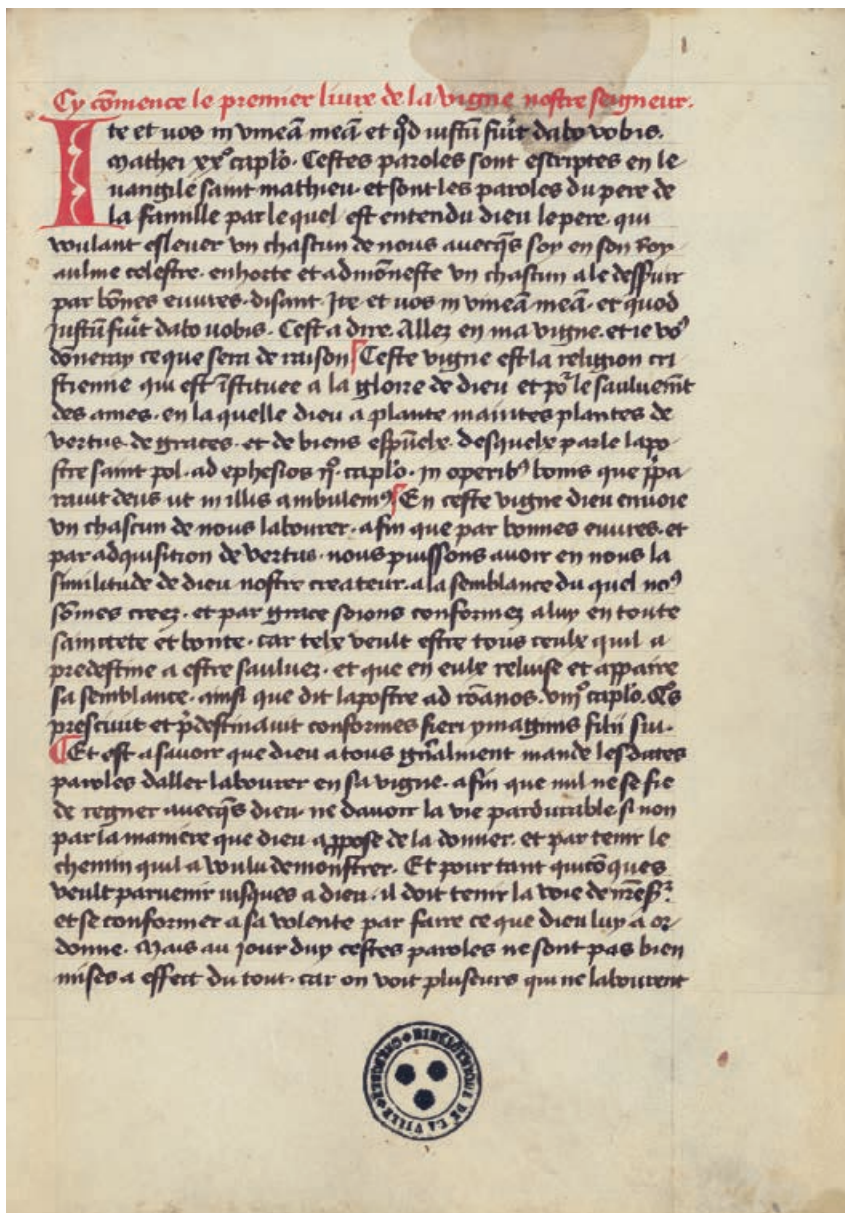 Cy cōmence le premier liure de la vigne nostre seigneur.
Ite et uos in vineā meā et qd iustū fuīt dabo vobis.
Mathei xx° caplo. Cestes paroles sont escriptes en le
uangile saint mathieu. et sont les paroles du pere de
la famille par le quel est entendu dieu le pere. qui
voulant esleuer vn chascun de nous auecq̄s soy en son Roy
aulme celestre. enhorte et admōneste vn chascun a le desseruir
par bōnes euures. disant. Ite et uos in vineā meā. et quod
iustū fuīt dabo uobis. Cest a dire. Allez en ma vigne. et ie vo⁹
dōneray ce que sera de raison Ceste vigne est la religion cri
stienne qui est īstituee a la gloire de dieu et po͛ le sauluem̄t
des ames. en la quelle dieu a plante maintes plantes de
vertus. de graces. et de biens espūelx. desquelx parle lapo
stre saint pol. ad ephesios ij°. caplo. in operib⁹ bonis que p̄pa
rauit deus ut in illis ambulem⁹ En ceste vigne dieu enuoie
vn chascun de nous labourer. afin que par bonnes euures. et
par adquisition de vertus. nous puissons auoir en nous la
similitude de dieu nostre createur. a la semblance du quel no⁹
sōmes creez. et par grace soions conformez a luy en toute
sainctete et bonte. car telx veult estre tous ceulx quil a
predestine a estre sauluez. et que en eulx reluise et appaire
sa semblance. ainsi que dit lapostre ad rōanos. viij° caplo. Q̄s
presciuit et p̄destinauit conformes fieri ymaginis filii sui.
Et est asauoir que dieu a tous gn̄alment mande lesdictes
paroles daller labourer en sa vigne. afin que nul ne se fie
de regner auecq̄s dieu. ne dauoir la vie pardurable si non
par la maniere que dieu a ppose de la donner. et par tenir le
chemin quil a voulu demonstrer. Et pour tant quicōques
veult paruenir iusques a dieu. il doit tenir la voie de nr̄e sr̄.
et se conformer a sa volente par faire ce que dieu luy a or
donne. Mais au jour duy cestes paroles ne sont pas bien
mises a effect du tout. car on voit pluseurs qui ne labourent
BIBLIOTHÈQUE DE LA VILLE DE GRENOBLE